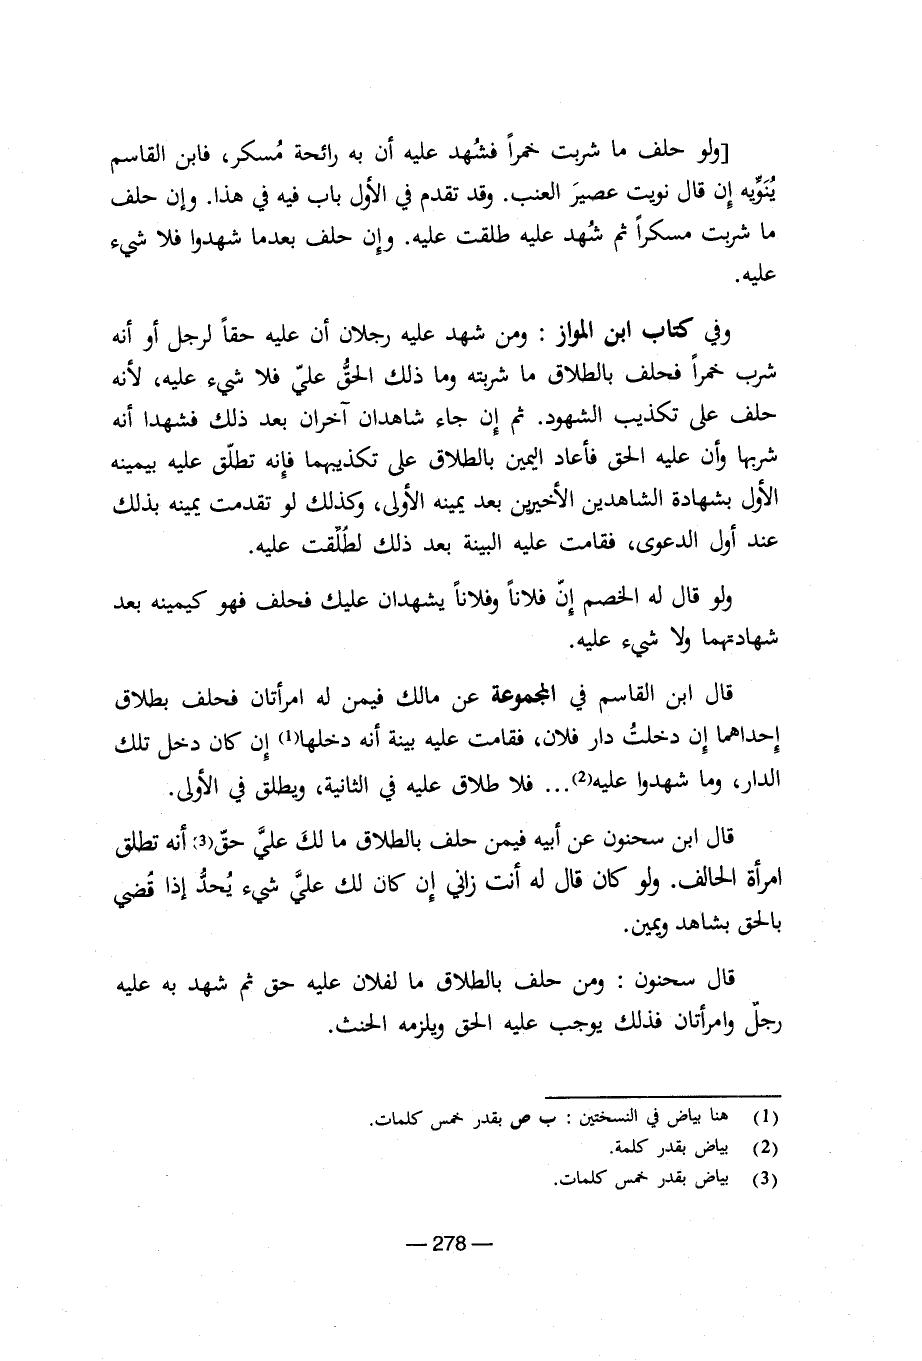 [ولو حلف ما شربت خمراً فشُهد عليه أن به رائحة مُسكر، فابن القاسم
يُنَوِّيه إن قال نويت عصيرَ العنب. وقد تقدم في الأول باب فيه في هذا. وإن حلف
ما شربت مسكراً ثم شُهد عليه طلقت عليه. وإن حلف بعدما شهدوا فلا شيء
عليه.
وفي كتاب ابن المواز : ومن شهد عليه رجلان أن عليه حقاً لرجل أو أنه
شرب خمراً فحلف بالطلاق ما شربته وما ذلك الحقُّ عليّ فلا شيء عليه، لأنه
حلف على تكذيب الشهود. ثم إن جاء شاهدان آخران بعد ذلك فشهدا أنه
شربها وأن عليه الحق فأعاد اليمين بالطلاق على تكذيبهما فإنه تطلّق عليه بيمينه
الأول بشهادة الشاهدين الأخيرين بعد يمينه الأولى، وكذلك لو تقدمت يمينه بذلك
عند أول الدعوى، فقامت عليه البينة بعد ذلك لطُلّقت عليه.
ولو قال له الخصم إنّ فلاناً وفلاناً يشهدان عليك فحلف فهو كيمينه بعد
شهادتهما ولا شيء عليه.
قال ابن القاسم في المجموعة عن مالك فيمن له امرأتان فحلف بطلاق
إحداهما إن دخلتُ دار فلان، فقامت عليه بينة أنه دخلها(1) إن كان دخل تلك
الدار، وما شهدوا عليه(2)... فلا طلاق عليه في الثانية، ويطلق في الأولى.
قال ابن سحنون عن أبيه فيمن حلف بالطلاق ما لكَ عليَّ حقّ(3) أنه تطلق
امرأة الحالف. ولو كان قال له أنت زاني إن كان لك عليَّ شيء يُحدُّ إذا قُضي
بالحق بشاهد ويمين.
قال سحنون : ومن حلف بالطلاق ما لفلان عليه حق ثم شهد به عليه
رجلٌ وامرأتان فذلك يوجب عليه الحق ويلزمه الحنث.
(1) هنا بياض في النسختين : ب ص بقدر خمس كلمات.
(2) بياض بقدر كلمة.
(3) بياض بقدر خمس كلمات.
— 278 —